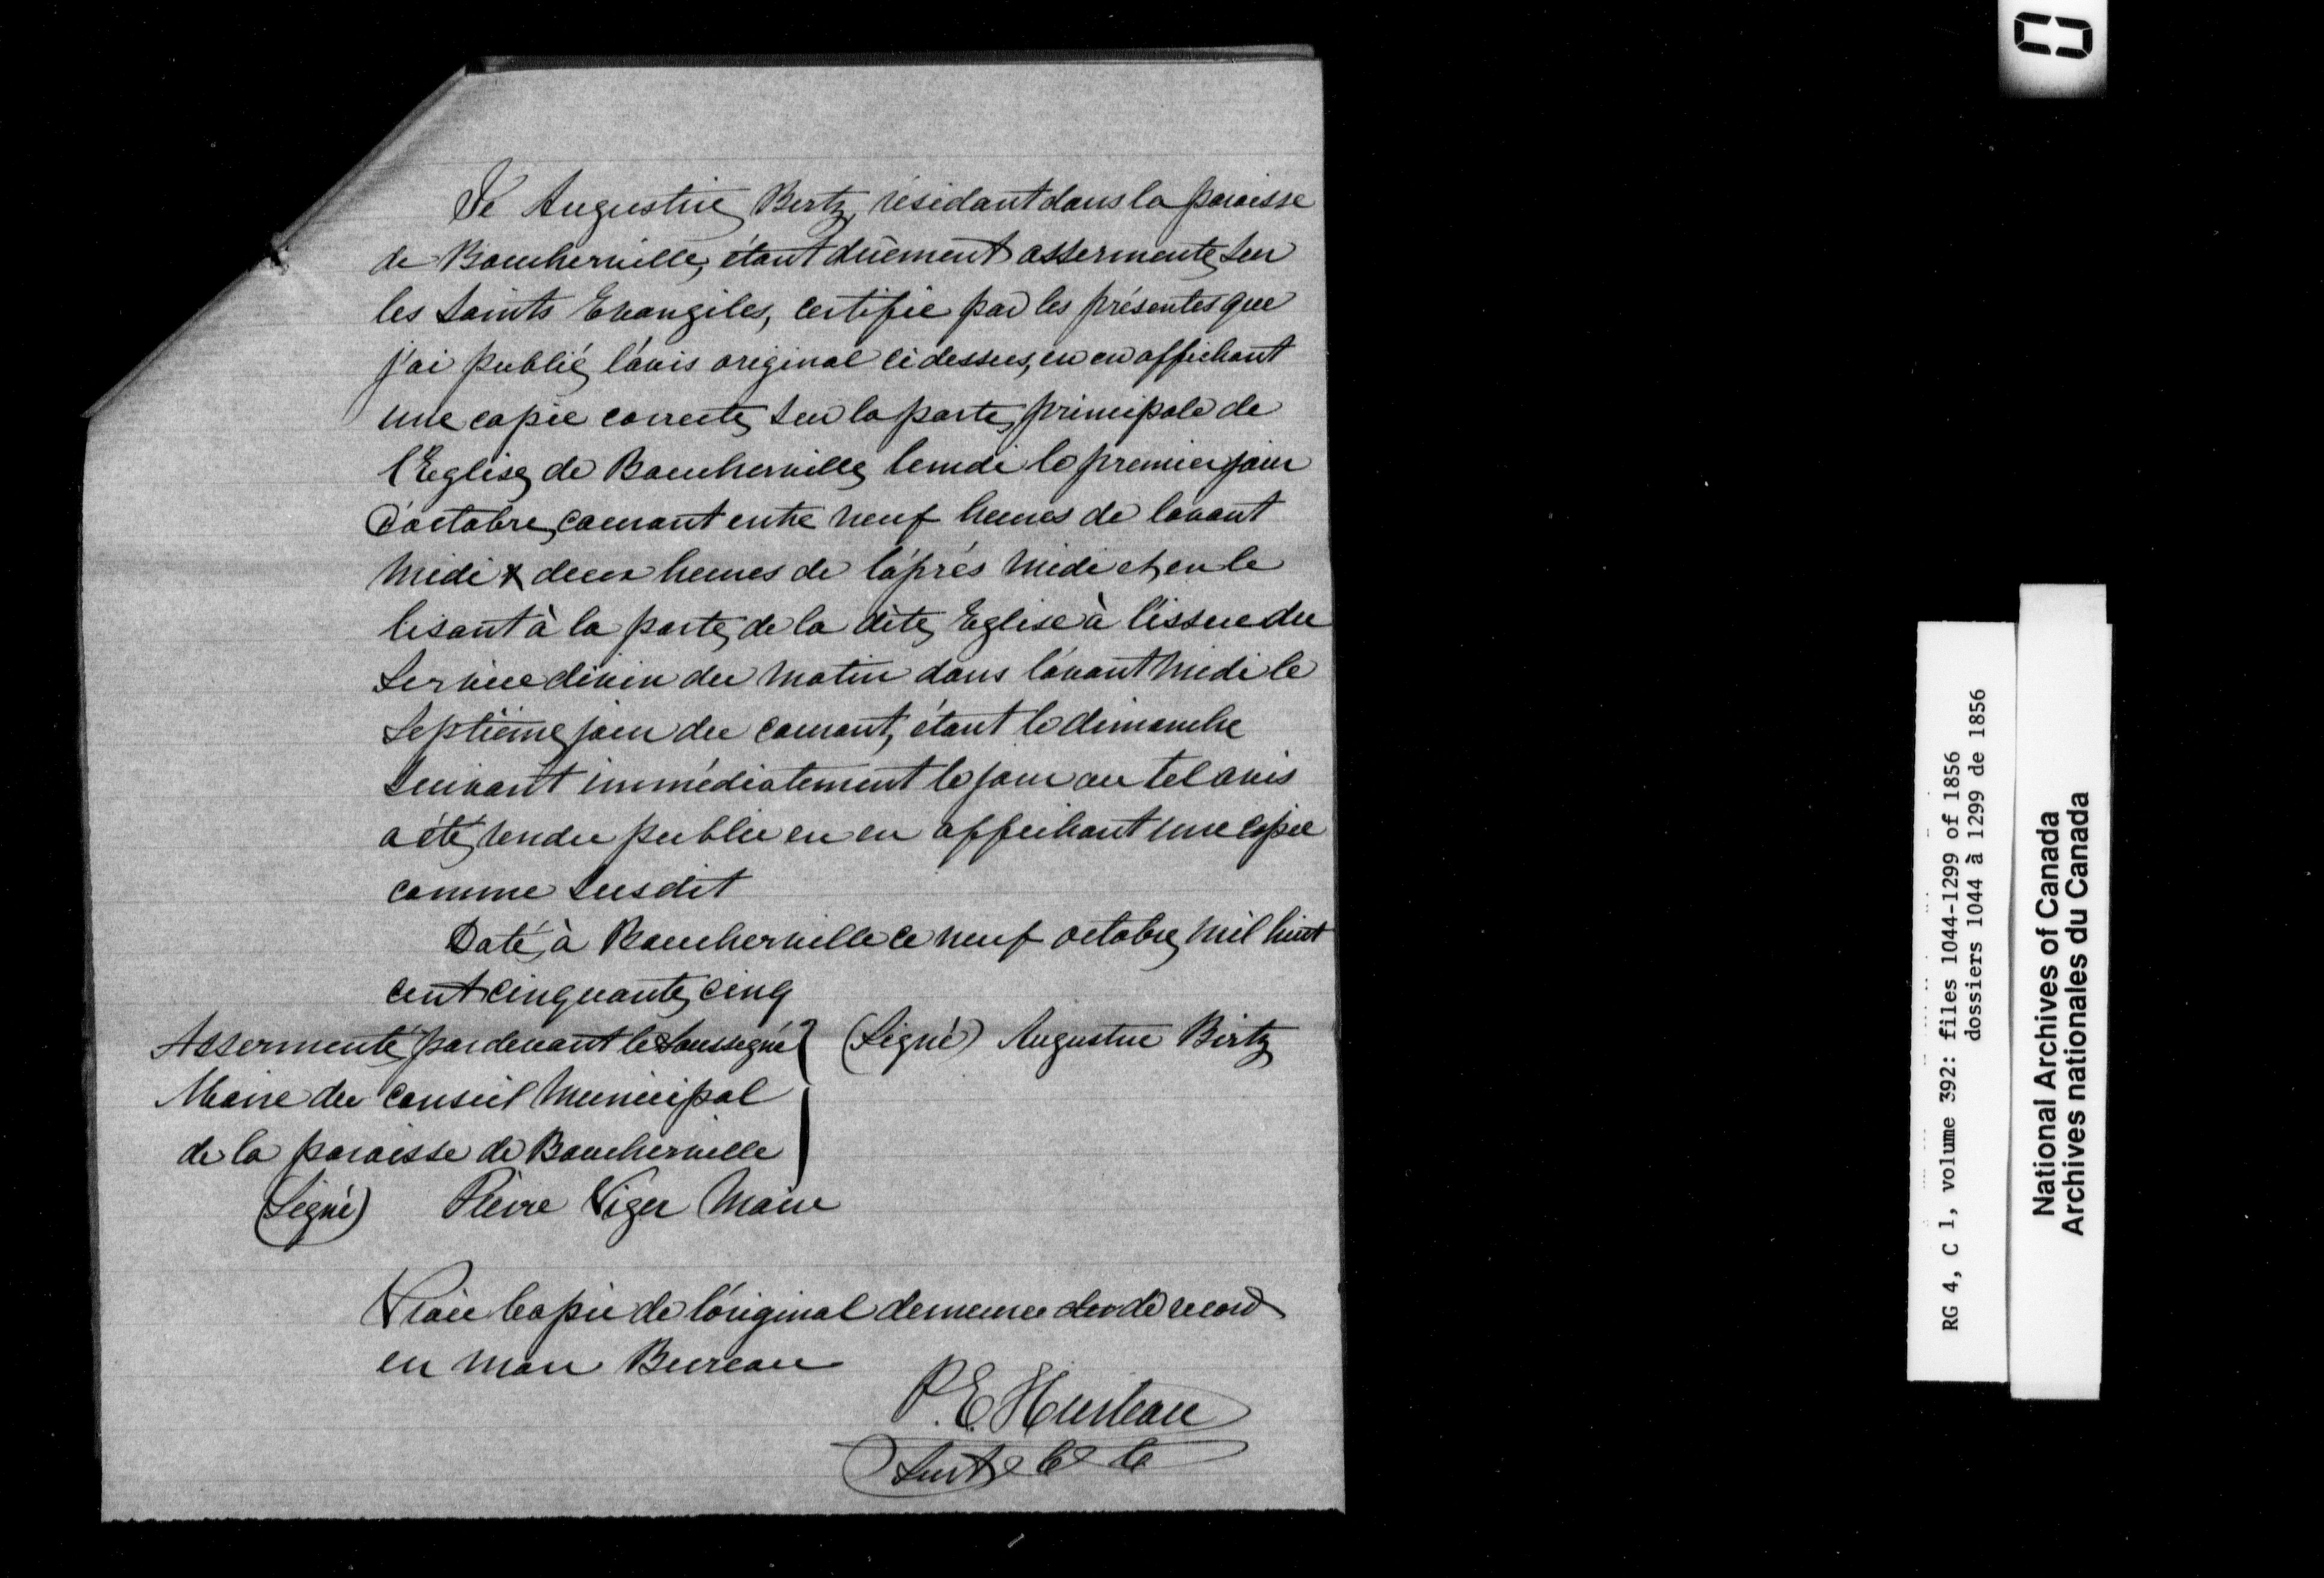 Je Augustin Birtz, résidant dans la paroisse
de Boucherville, étant dûement assermenté sur
les Saints Evangiles, certifie par les présentes que
j'ai publié l'avis original ci dessus, en en affichant
une copie correcte sur la porte principale de
l'Eglise de Boucherville lundi le premier jour
d'octobre courant entre neuf heures de l'avant
midi & deux heures de l'après midi et en le
lisant à la porte de la dite Eglise à l'issue du
Service divin du matin dans l'avant midi le
Septième jour du courant, étant le dimanche
suivant immédiatement le jour où tel avis
a été rendu public en en affichant une copie
comme susdit
Daté à Boucherville ce neuf octobre mil huit
cent cinquante cinq
Assermenté pardevant le Soussigné } (Signé) Augustin Birtz
Maire du Conseil Municipal
de la paroisse de Boucherville
(Signé) Pierre Viger Maire
Vraie Copie de l'original demeuré de record
en mon Bureau
P. E. Hurteau
RG 4, C 1, volume 392: files 1044-1299 of 1856
dossiers 1044 à 1299 de 1856
National Archives of Canada
Archives nationales du Canada